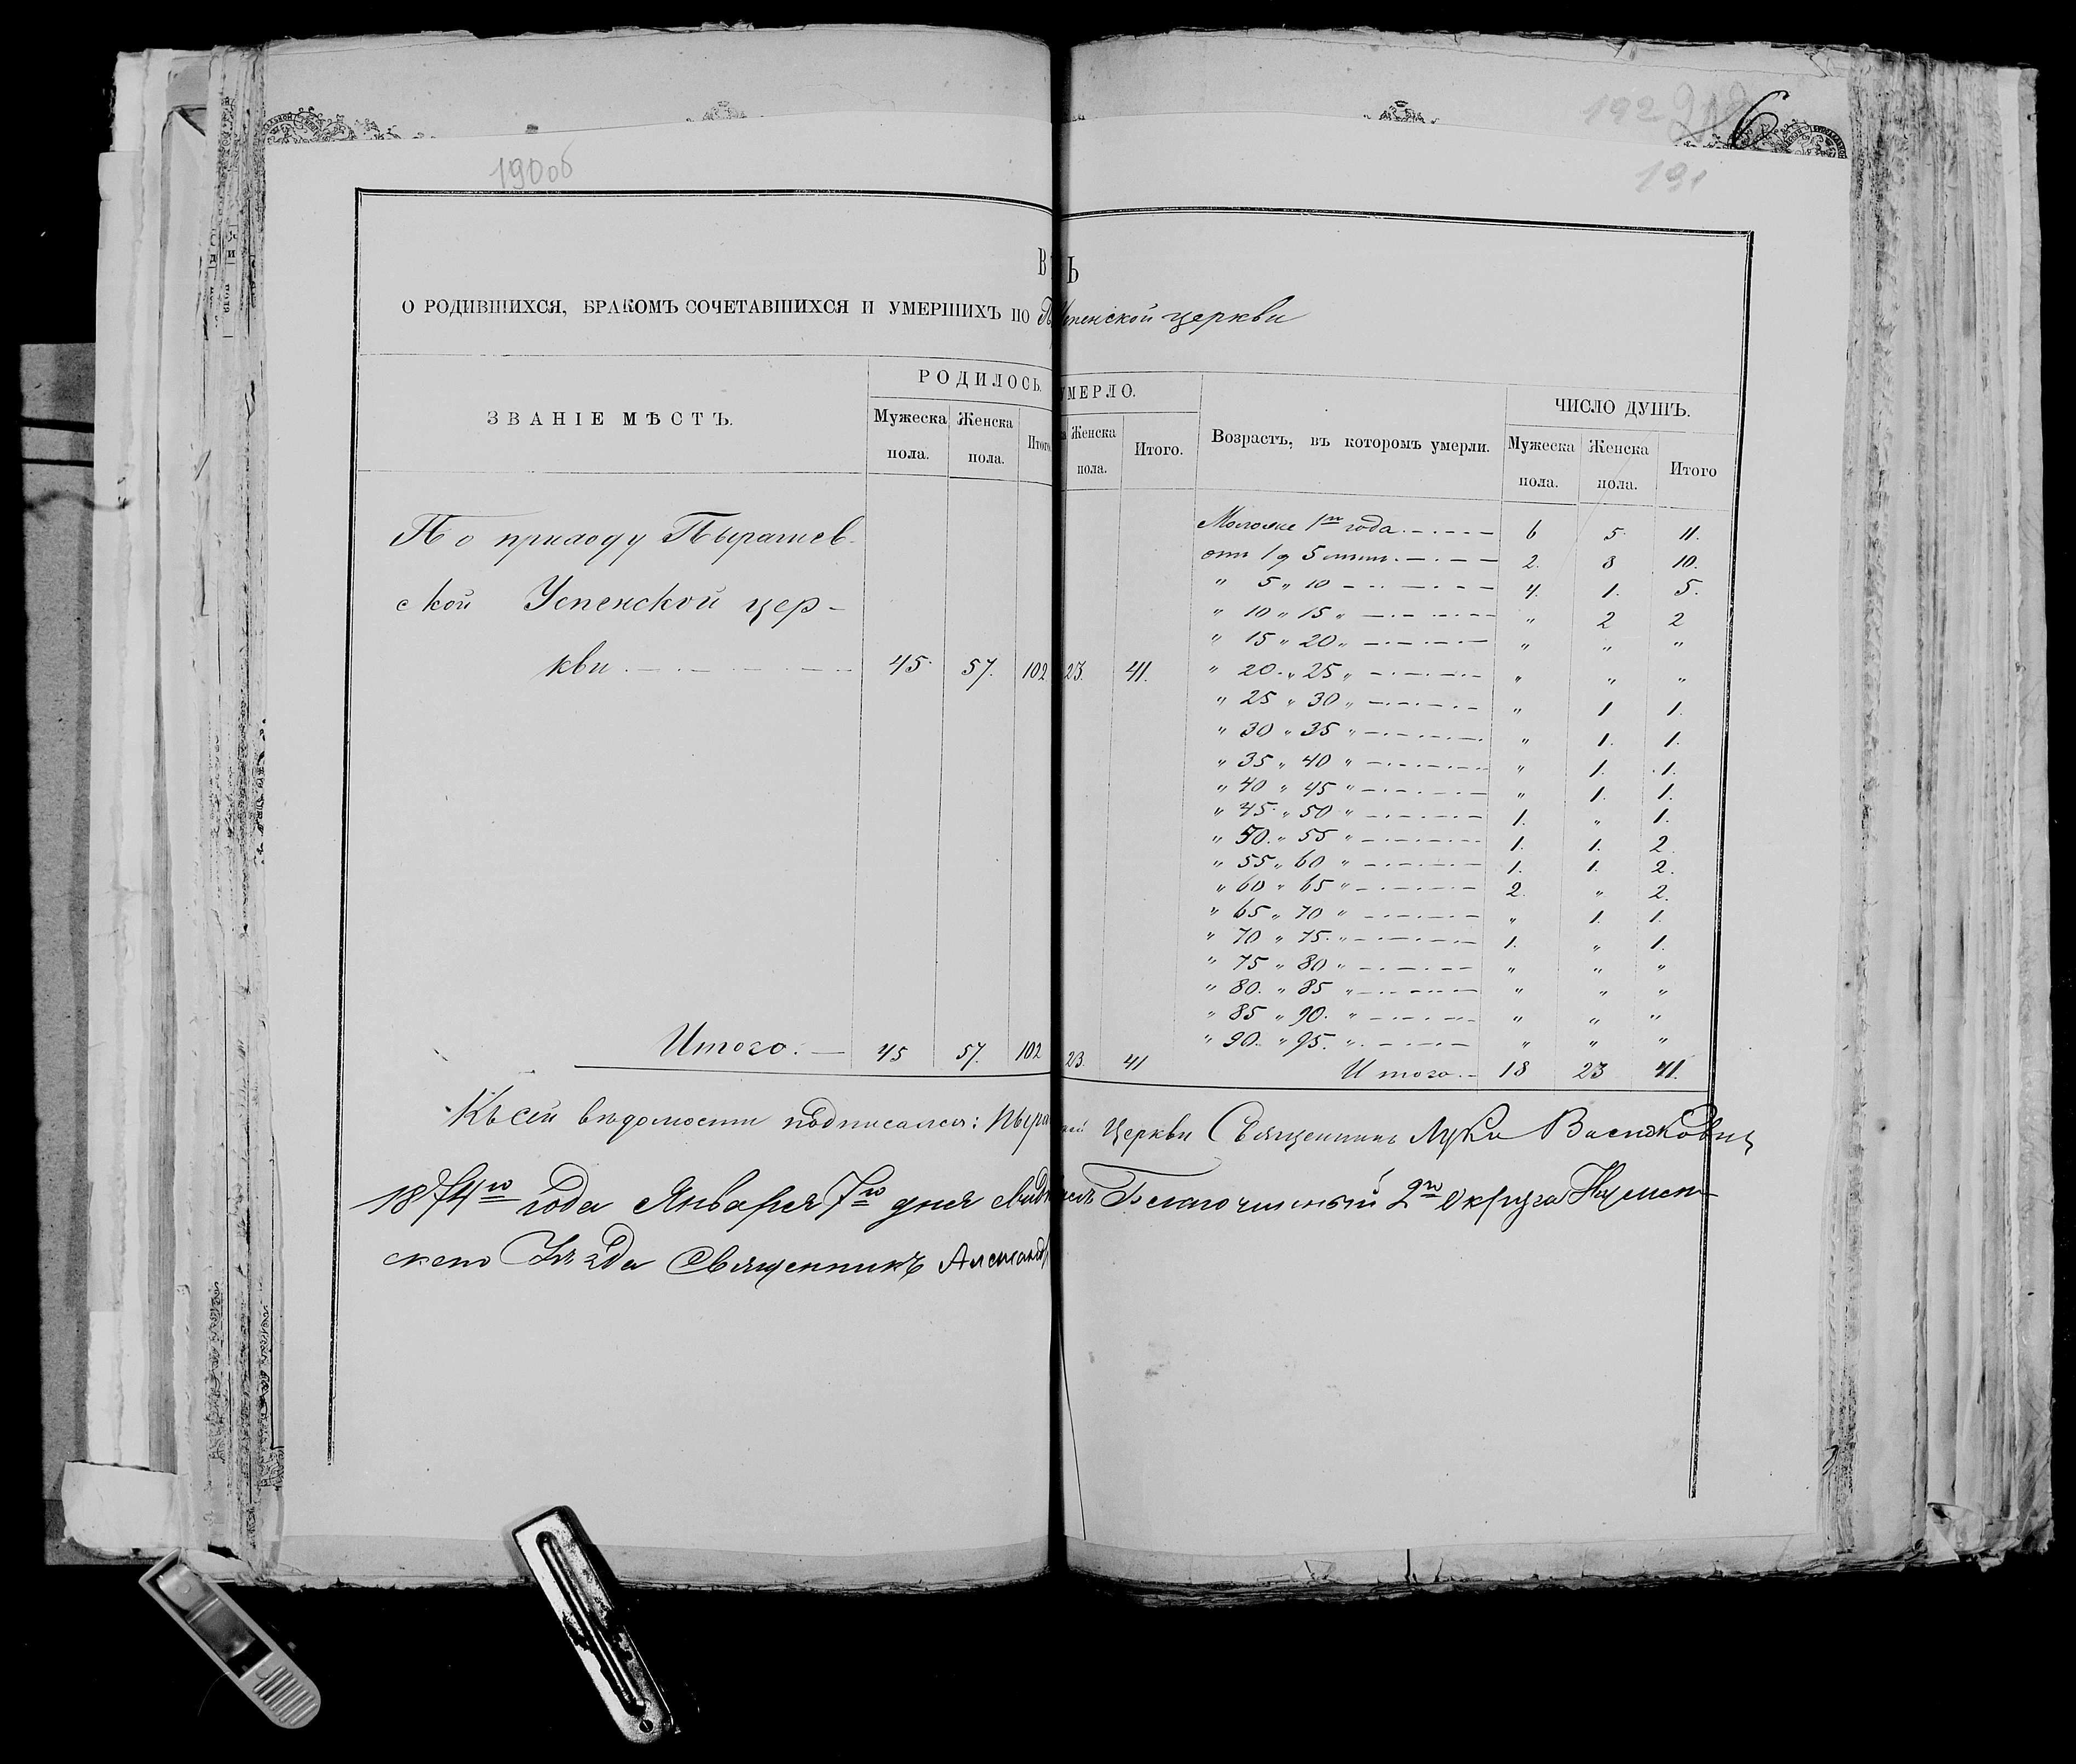 190об
192
6
191
ВЪ
О РОДИВШИХСЯ, БРАКОМЪ СОЧЕТАВШИХСЯ И УМЕРШИХЪ ПО успенской церкви
ЗВАНІЕ МѢСТЪ.
РОДИЛОСЬ.
Мужеска пола.
Женска пола.
Итого
УМЕРЛО.
Женска пола.
Итого.
Возрастъ, въ которомъ умерли.
ЧИСЛО ДУШЪ.
Мужеска пола.
Женска пола.
Итого
По приходу Пырашев-
ской Успенской цер-
кви 45. 57. 102 23. 41.
Моложе 1го года 6 5. 11.
отъ 1 д 5 лѣтъ 2. 8 10.
" 5 " 10 4. 1. 5.
" 10 " 15 " " 2 2
" 15 " 20 " " " "
" 20 " 25 " " " "
" 25 " 30 " " 1 1.
" 30 " 35 " " 1. 1.
" 35 " 40 " " 1. 1.
" 40 " 45 " " 1. 1.
" 45 " 50 " 1. " 1.
" 50 " 55 " 1. 1. 2.
" 55 " 60 " 1. 1. 2.
" 60 " 65 " 2. " 2.
" 65 " 70 " " 1. 1.
" 70 " 75 " 1. " 1.
" 75 " 80 " " " "
" 80 " 85 " " " "
" 85 " 90 " " " "
" 90 " 95 " " " "
Итого. 45 57. 102 23. 41
Итого. 18 23 41.
Къ сей вѣдомости подписался: Пыра кой Церкви Священникъ Лука Васюковичъ
1874го года Января 7го дня Благочинный 2го округа Игумен-
скаго Уѣзда Священникъ Александ